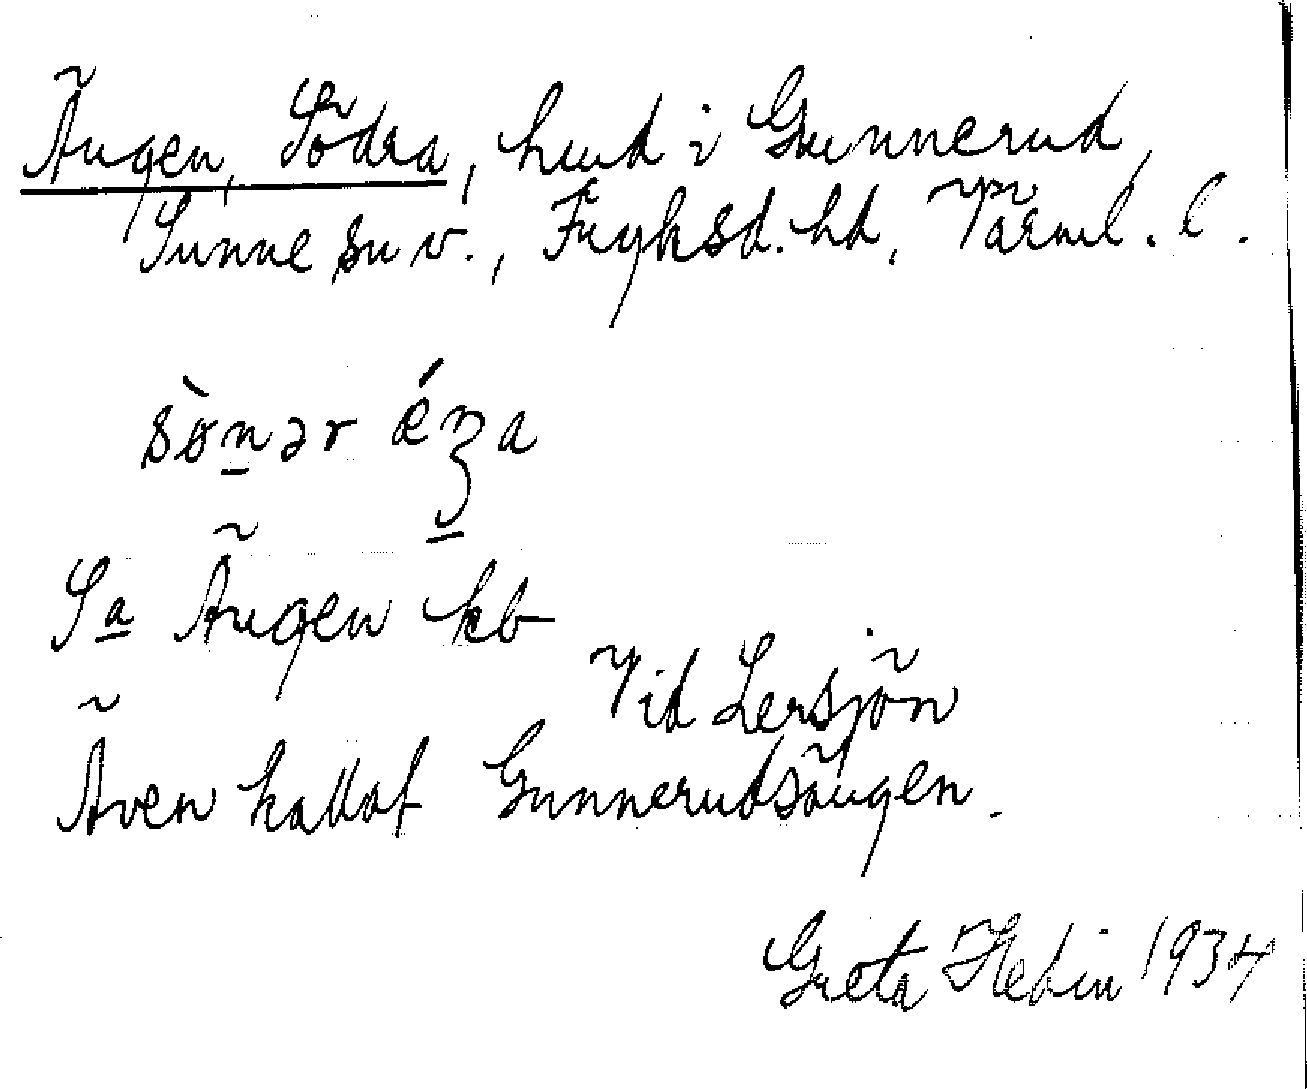 Ängen, Södra, hmd i Gunnerud,
Sunne sn v., Fryksd. hd, Värml. l.
sònər ǽŋa
Sa Ängen kb
Vid Lersjön
Även kallat Gunnerudsängen.
Greta Hedin 1934